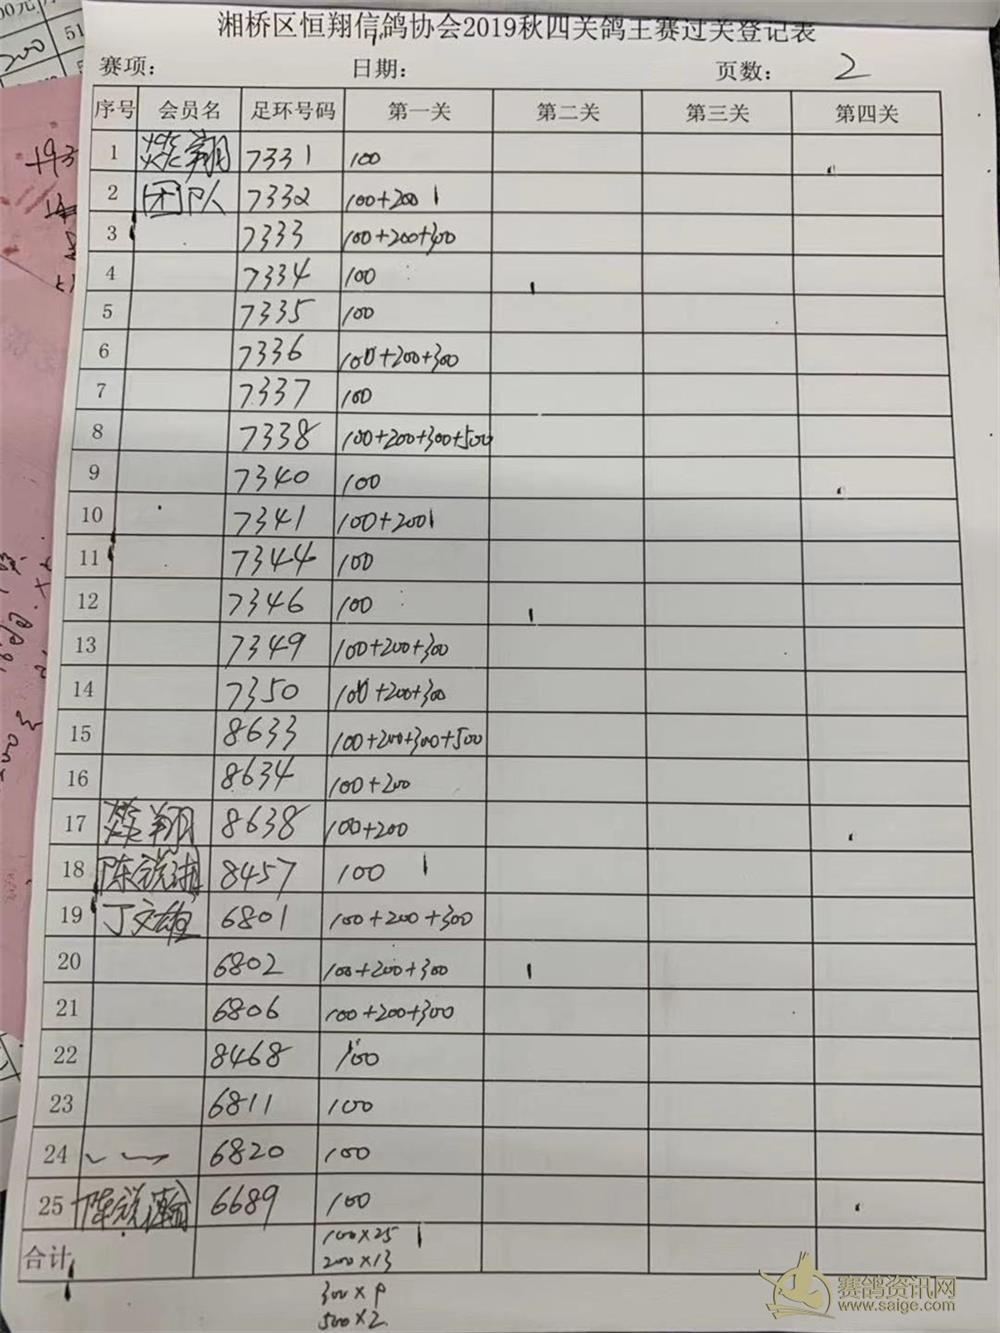 湘桥区恒翔信鸽协会2019秋四关鸽王赛过关登记表
赛项： 日期： 页数： 2
序号 会员名 足环号码 第一关 第二关 第三关 第四关
1 燚翔 7331 100
2 团队 7332 100+200
3 7333 100+200+400
4 7334 100
5 7335 100
6 7336 100+200+300
7 7337 100
8 7338 100+200+300+500
9 7340 100
10 7341 100+200
11 7344 100
12 7346 100
13 7349 100+200+300
14 7350 100+200+300
15 8633 100+200+300+500
16 8634 100+200
17 燚翔 8638 100+200
18 陈 8457 100
19 丁文雄 6801 100+200+300
20 6802 100+200+300
21 6806 100+200+300
22 8468 100
23 6811 100
24 6820 100
25 陈 6689 100
合计 100×25
200×13
300×9
500×2
赛鸽资讯网
www.saige.com